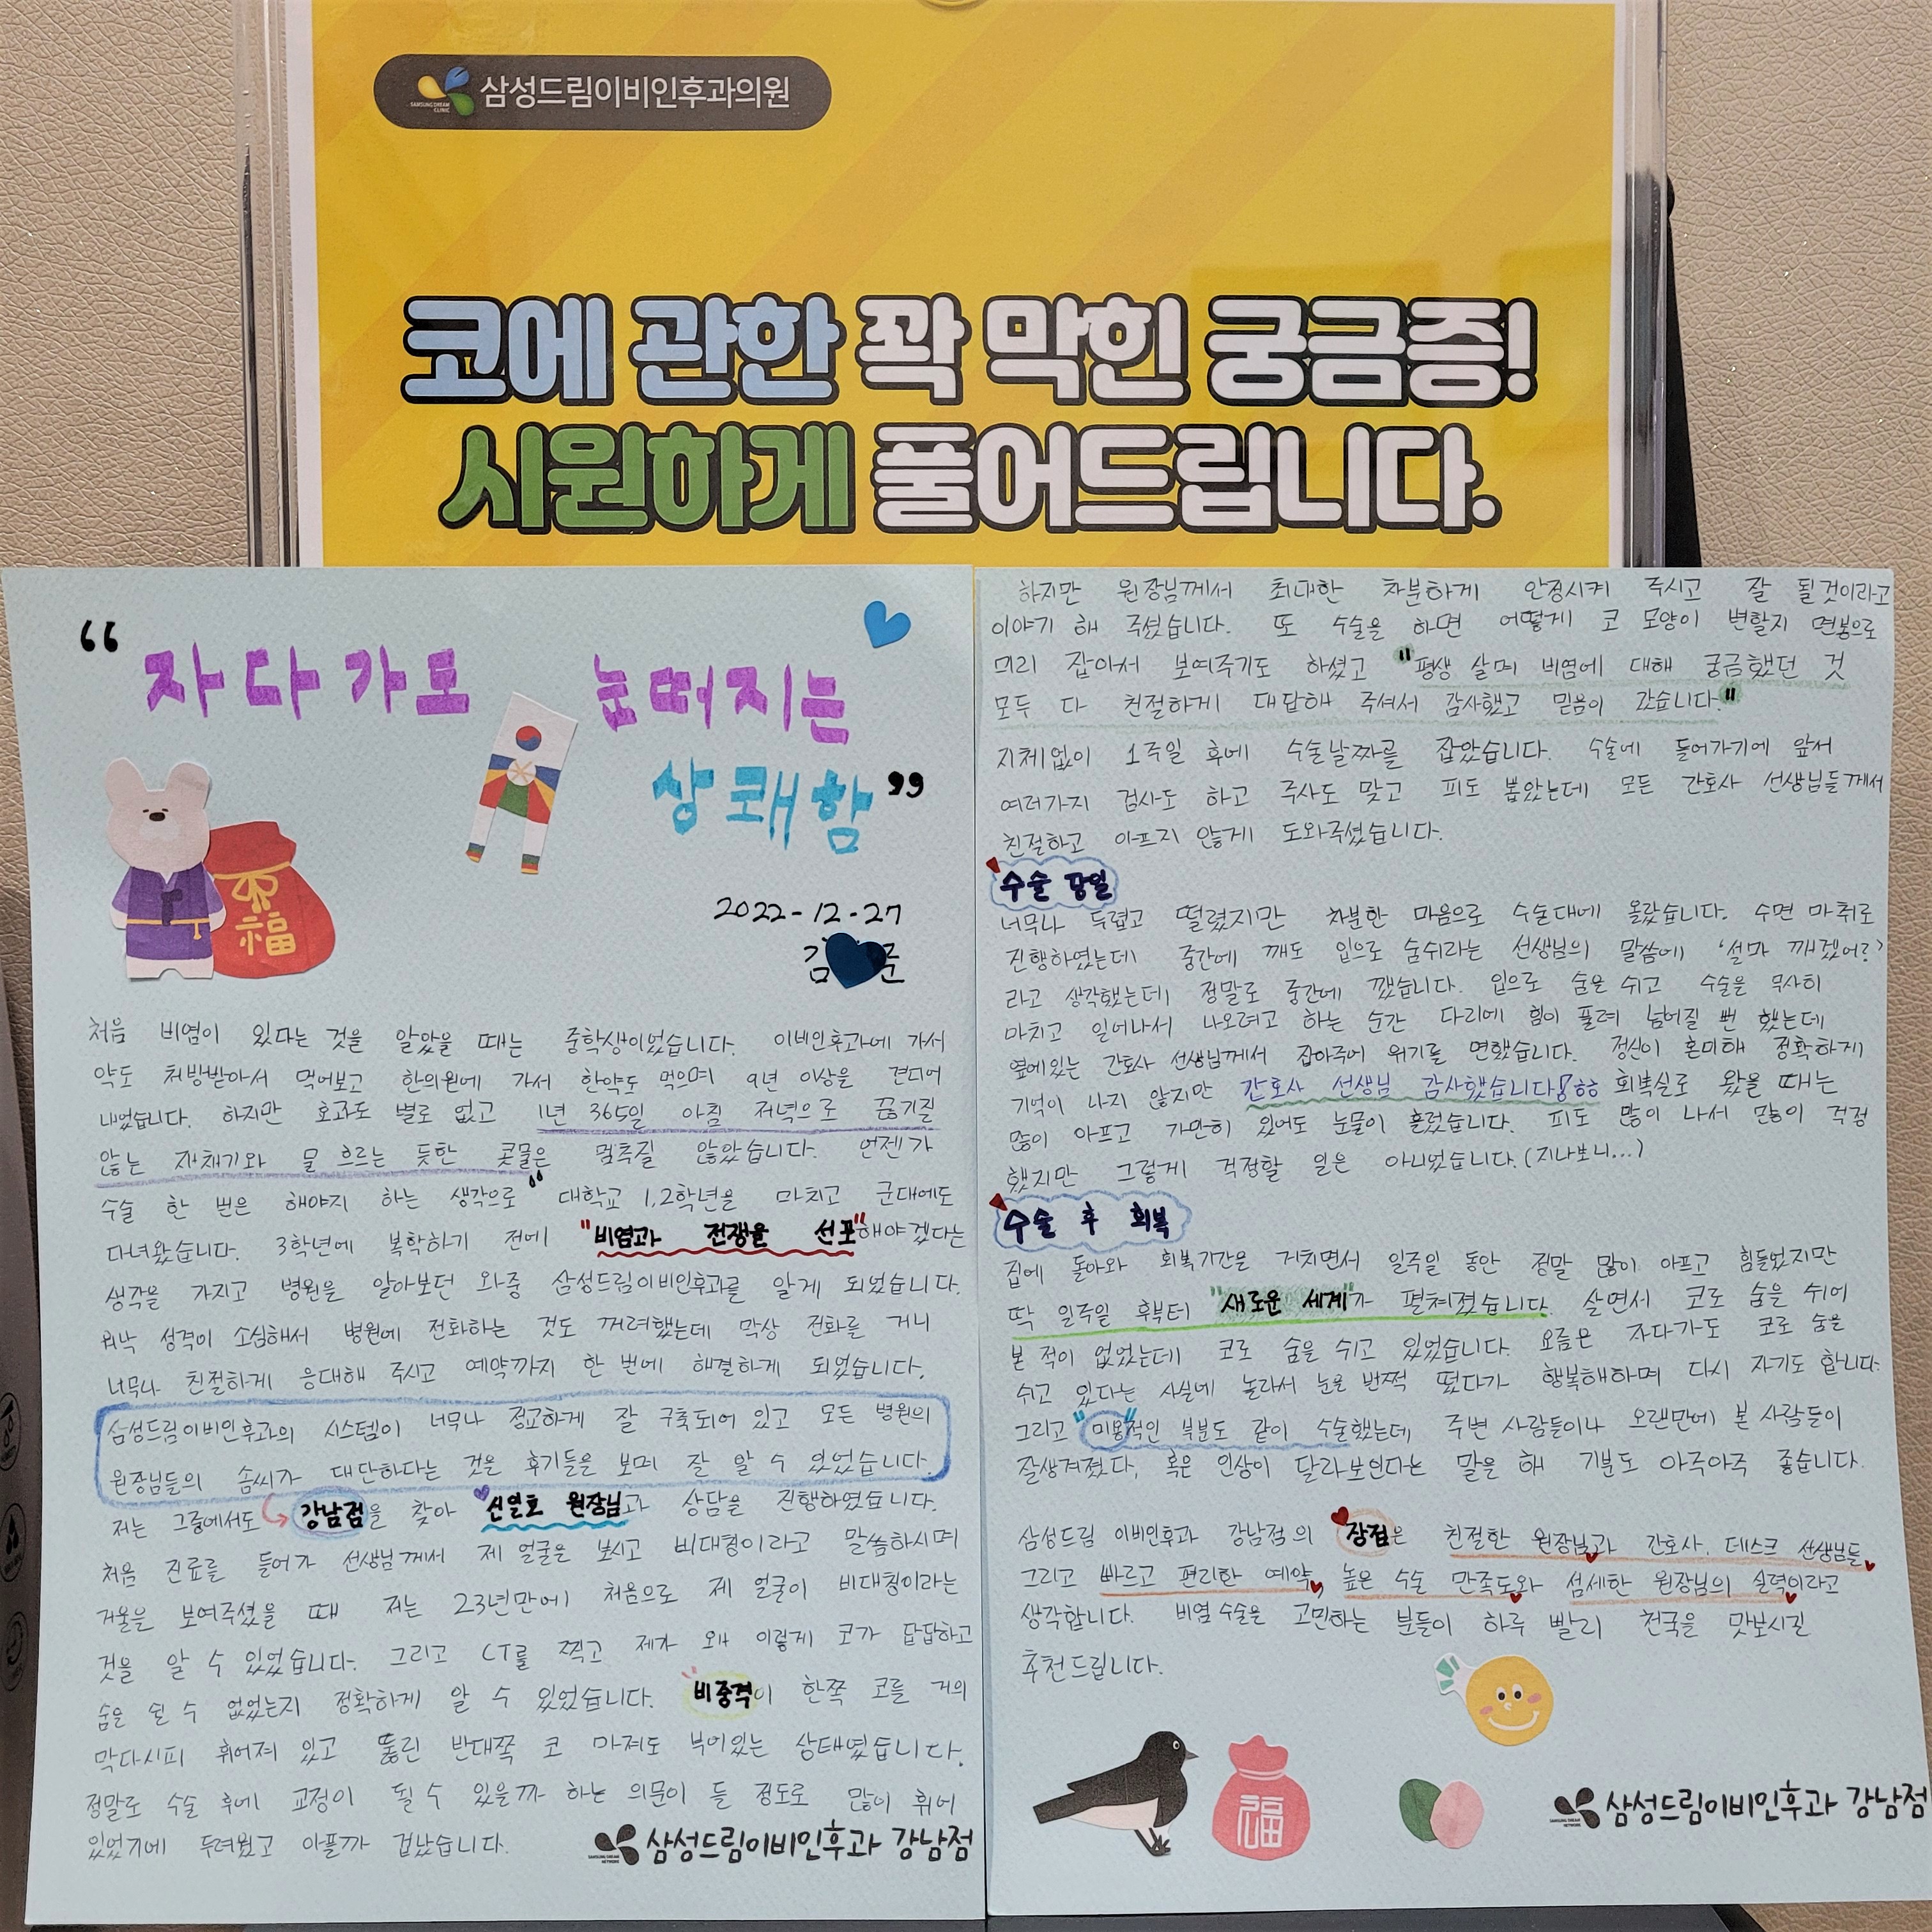 SAMSUNG DREAM CLINIC
삼성드림이비인후과의원
코에 관한 꽉 막힌 궁금증!
시원하게 풀어드립니다.
“자다가도 눈떠지는
상쾌함”
2022-12-27
김 준
福
처음 비염이 있다는 것을 알았을 때는 중학생이었습니다. 이비인후과에 가서
약도 처방받아서 먹어보고 한의원에 가서 한약도 먹으며 9년 이상을 견디어
내었습니다. 하지만 효과도 별로 없고 1년 365일 아침 저녁으로 끊기질
않는 재채기와 물 흐르는 듯한 콧물은 멈추질 않았습니다. 언젠가
수술 한 번은 해야지 하는 생각으로 대학교 1,2학년을 마치고 군대에도
다녀왔습니다. 3학년에 복학하기 전에 "비염과 전쟁을 선포"해야겠다는
생각을 가지고 병원을 알아보던 와중 삼성드림이비인후과를 알게 되었습니다.
워낙 성격이 소심해서 병원에 전화하는 것도 꺼려했는데 막상 전화를 거니
너무나 친절하게 응대해 주시고 예약까지 한 번에 해결하게 되었습니다.
삼성드림이비인후과의 시스템이 너무나 정교하게 잘 구축되어 있고 모든 병원의
원장님들의 솜씨가 대단하다는 것을 후기들을 보며 잘 알 수 있었습니다.
저는 그중에서도 강남점을 찾아 신열호 원장님과 상담을 진행하였습니다.
처음 진료를 들어가 선생님께서 제 얼굴을 보시고 비대칭이라고 말씀하시며
거울을 보여주셨을 때 저는 23년만에 처음으로 제 얼굴이 비대칭이라는
것을 알 수 있었습니다. 그리고 CT를 찍고 제가 왜 이렇게 코가 답답하고
숨을 쉴 수 없었는지 정확하게 알 수 있었습니다. 비중격이 한쪽 코를 거의
막다시피 휘어져 있고 뚫린 반대쪽 코 마저도 부어있는 상태였습니다.
정말로 수술 후에 교정이 될 수 있을까 하는 의문이 들 정도로 많이 휘어
있었기에 두려웠고 아플까 겁났습니다.
삼성드림이비인후과 강남점
하지만 원장님께서 최대한 차분하게 안정시켜 주시고 잘 될것이라고
이야기 해 주셨습니다. 또 수술을 하면 어떻게 코 모양이 변할지 면봉으로
미리 잡아서 보여주기도 하셨고 "평생 살며 비염에 대해 궁금했던 것
모두 다 친절하게 대답해 주셔서 감사했고 믿음이 갔습니다."
지체없이 1주일 후에 수술날짜를 잡았습니다. 수술에 들어가기에 앞서
여러가지 검사도 하고 주사도 맞고 피도 뽑았는데 모든 간호사 선생님들께서
친절하고 아프지 않게 도와주셨습니다.
수술 당일
너무나 두렵고 떨렸지만 차분한 마음으로 수술대에 올랐습니다. 수면 마취로
진행하였는데 중간에 깨도 입으로 숨쉬라는 선생님의 말씀에 '설마 깨겠어?'
라고 생각했는데 정말로 중간에 깼습니다. 입으로 숨을 쉬고 수술을 무사히
마치고 일어나서 나오려고 하는 순간 다리에 힘이 풀려 넘어질 뻔 했는데
옆에있는 간호사 선생님께서 잡아주어 위기를 면했습니다. 정신이 혼미해 정확하게
기억이 나지 않지만 간호사 선생님 감사했습니다!ㅎㅎ 회복실로 왔을 때는
많이 아프고 가만히 있어도 눈물이 흘렀습니다. 피도 많이 나서 많이 걱정
했지만 그렇게 걱정할 일은 아니었습니다.(지나보니...)
수술 후 회복
집에 돌아와 회복기간을 거치면서 일주일 동안 정말 많이 아프고 힘들었지만
딱 일주일 후부터 "새로운 세계"가 펼쳐졌습니다. 살면서 코로 숨을 쉬어
본 적이 없었는데 코로 숨을 쉬고 있었습니다. 요즘은 자다가도 코로 숨을
쉬고 있다는 사실에 놀라서 눈을 번쩍 떴다가 행복해하며 다시 자기도 합니다.
그리고 "미용"적인 부분도 같이 수술했는데 주변 사람들이나 오랜만에 본 사람들이
잘생겨졌다, 혹은 인상이 달라보인다는 말을 해 기분도 아주아주 좋습니다.
삼성드림 이비인후과 강남점의 장점은 친절한 원장님과 간호사, 데스크 선생님들
그리고 빠르고 편리한 예약, 높은 수술 만족도와 섬세한 원장님의 실력이라고
생각합니다. 비염 수술을 고민하는 분들이 하루 빨리 천국을 맛보시길
추천드립니다.
福
삼성드림이비인후과 강남점